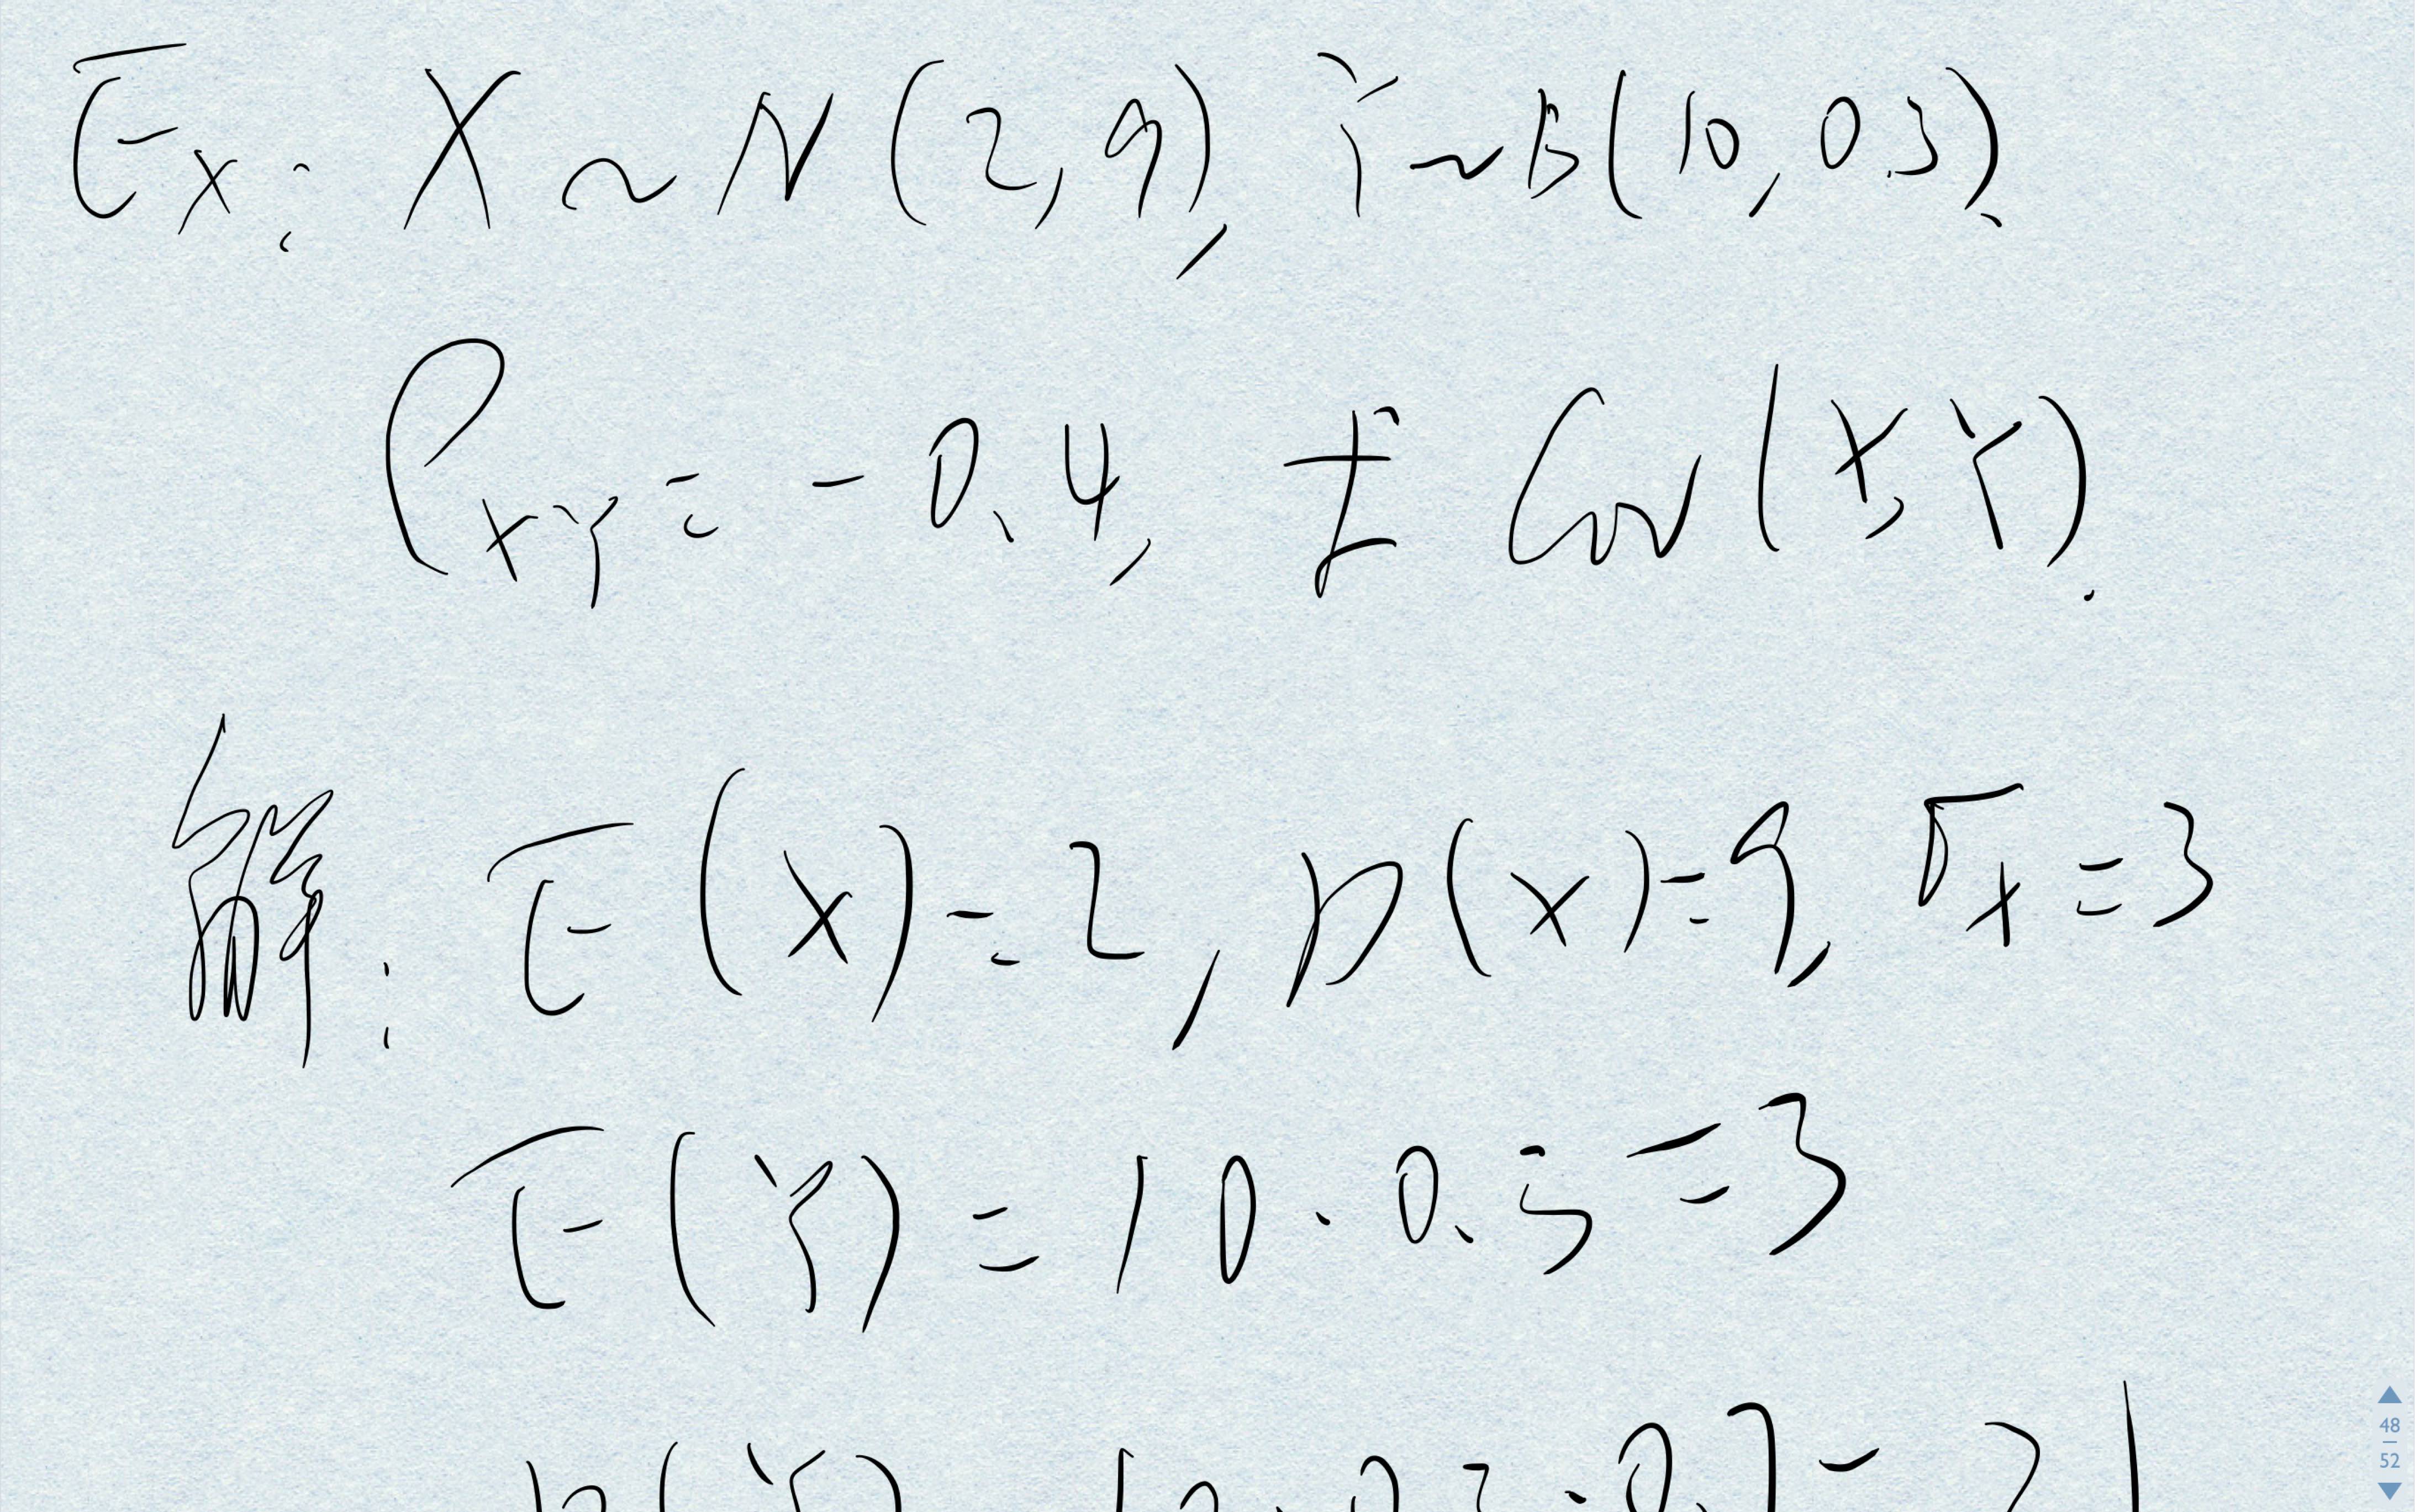 Ex: X ~ N(2,9), Y~B(10,0.3).
ρXY = -0.4, 求 Cov(X,Y).
解: E(X)=2, D(X)=9, σX=3
E(Y)=10·0.3=3
D(Y)=10·0.3·0.7=2.1
48
52